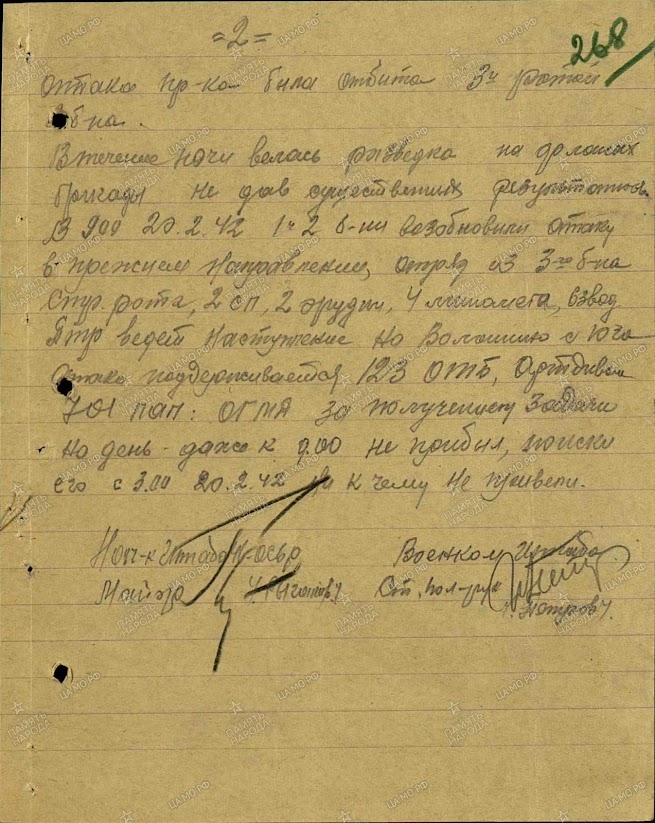 =2=
268
Атака пр-ка была отбита 3й ротой
3 б-на.
В течение ночи велась разведка на флангах
бригады не дав существенных результатов.
В 900 20.2.42 1 и 2 б-ни возобновили атаку
в прежнем направлении, отряд из 3го б-на
стр. рота, 2 сп, 2 орудия, 4 миномета, взвод
Птр ведет наступление на с юга
Атака поддерживается 123 ОТБ, Артдивом
701 пап: ОГМД за получением задачи
на день - даже к 9.00 не прибыл, поиски
его с 3.00 20.2.42 ни к чему не привели.
Нач-к Штаба
Военком Штаба
Майор
Ст. пол-рук
ПАМЯТЬ НАРОДА
ЦАМО.РФ